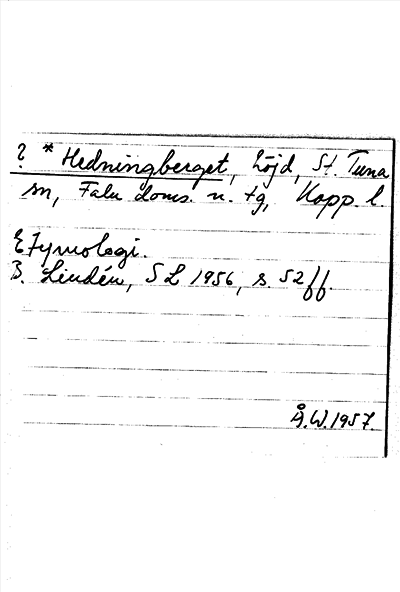 ? * Hedningberget, höjd, St. Tuna
sn, Falu doms. n. tg, Kopp. l.
Etymologi.
B. Lindén, SL 1956, s. 52 ff.
Å.W. 1957.